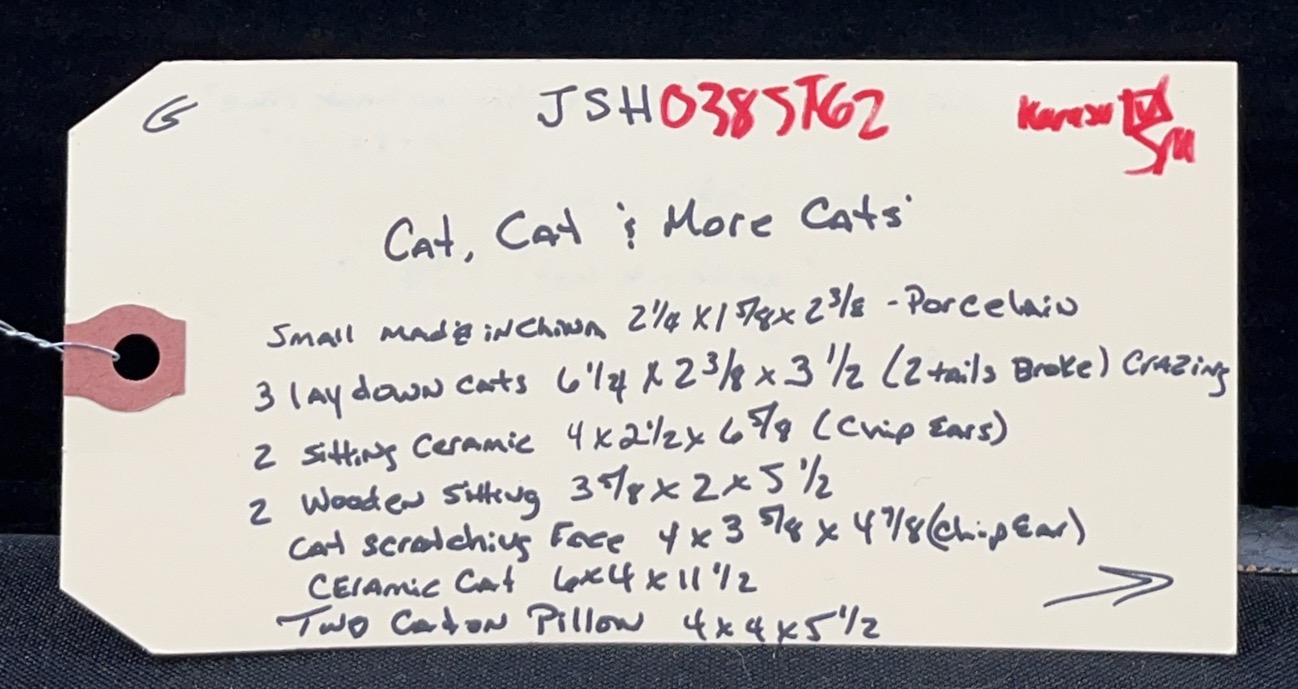 G JSH0385T62
Cat, Cat & More Cats
Small made in China 2 1/4 x 1 5/8 x 2 3/8 - Porcelain
3 lay down cats 6 1/4 x 2 3/8 x 3 1/2 (2 tails Broke) Crazing
2 sitting Ceramic 4 x 2 1/2 x 6 5/8 (Chip Ears)
2 Wooden Sitting 3 5/8 x 2 x 5 1/2
Cat scratching Face 4 x 3 5/8 x 4 7/8 (Chip Ear)
Ceramic Cat 6 x 4 x 11 1/2
Two Cat on Pillow 4 x 4 x 5 1/2